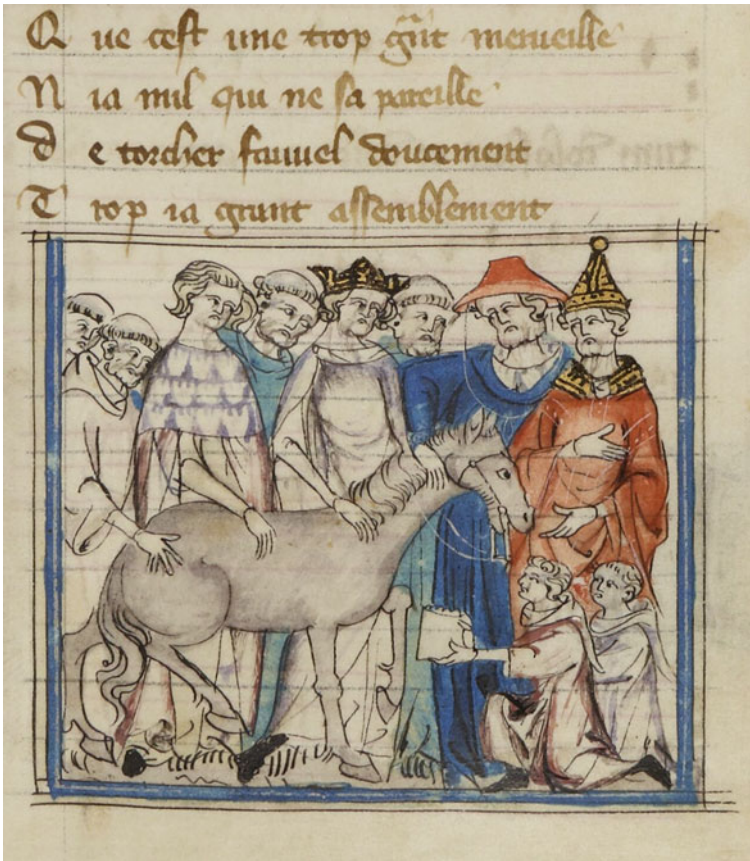 Que cest une trop gñt merueille
Nia nul qui ne sa pareille
De torcher fauuel doucement
Trop ia grant assemblement